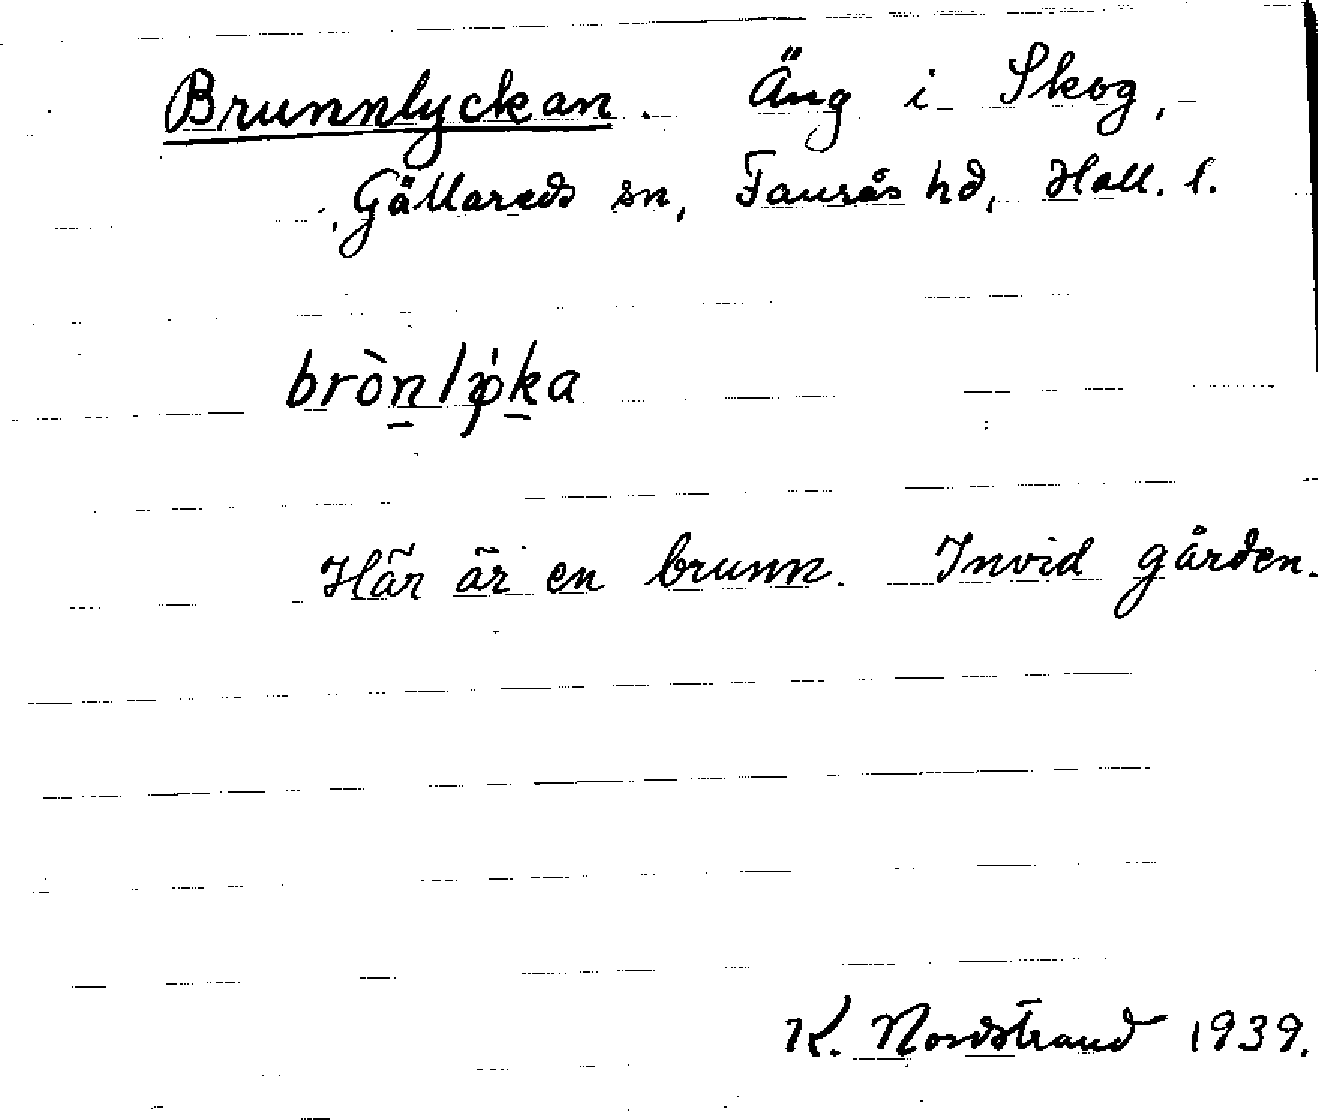 Brunnlyckan. Äng i Skog,
Gällareds sn, Faurås hd, Hall. l.
bròn̲lø̇k̲a
Här är en brunn. Invid gården.
K. Nordstrand 1939.